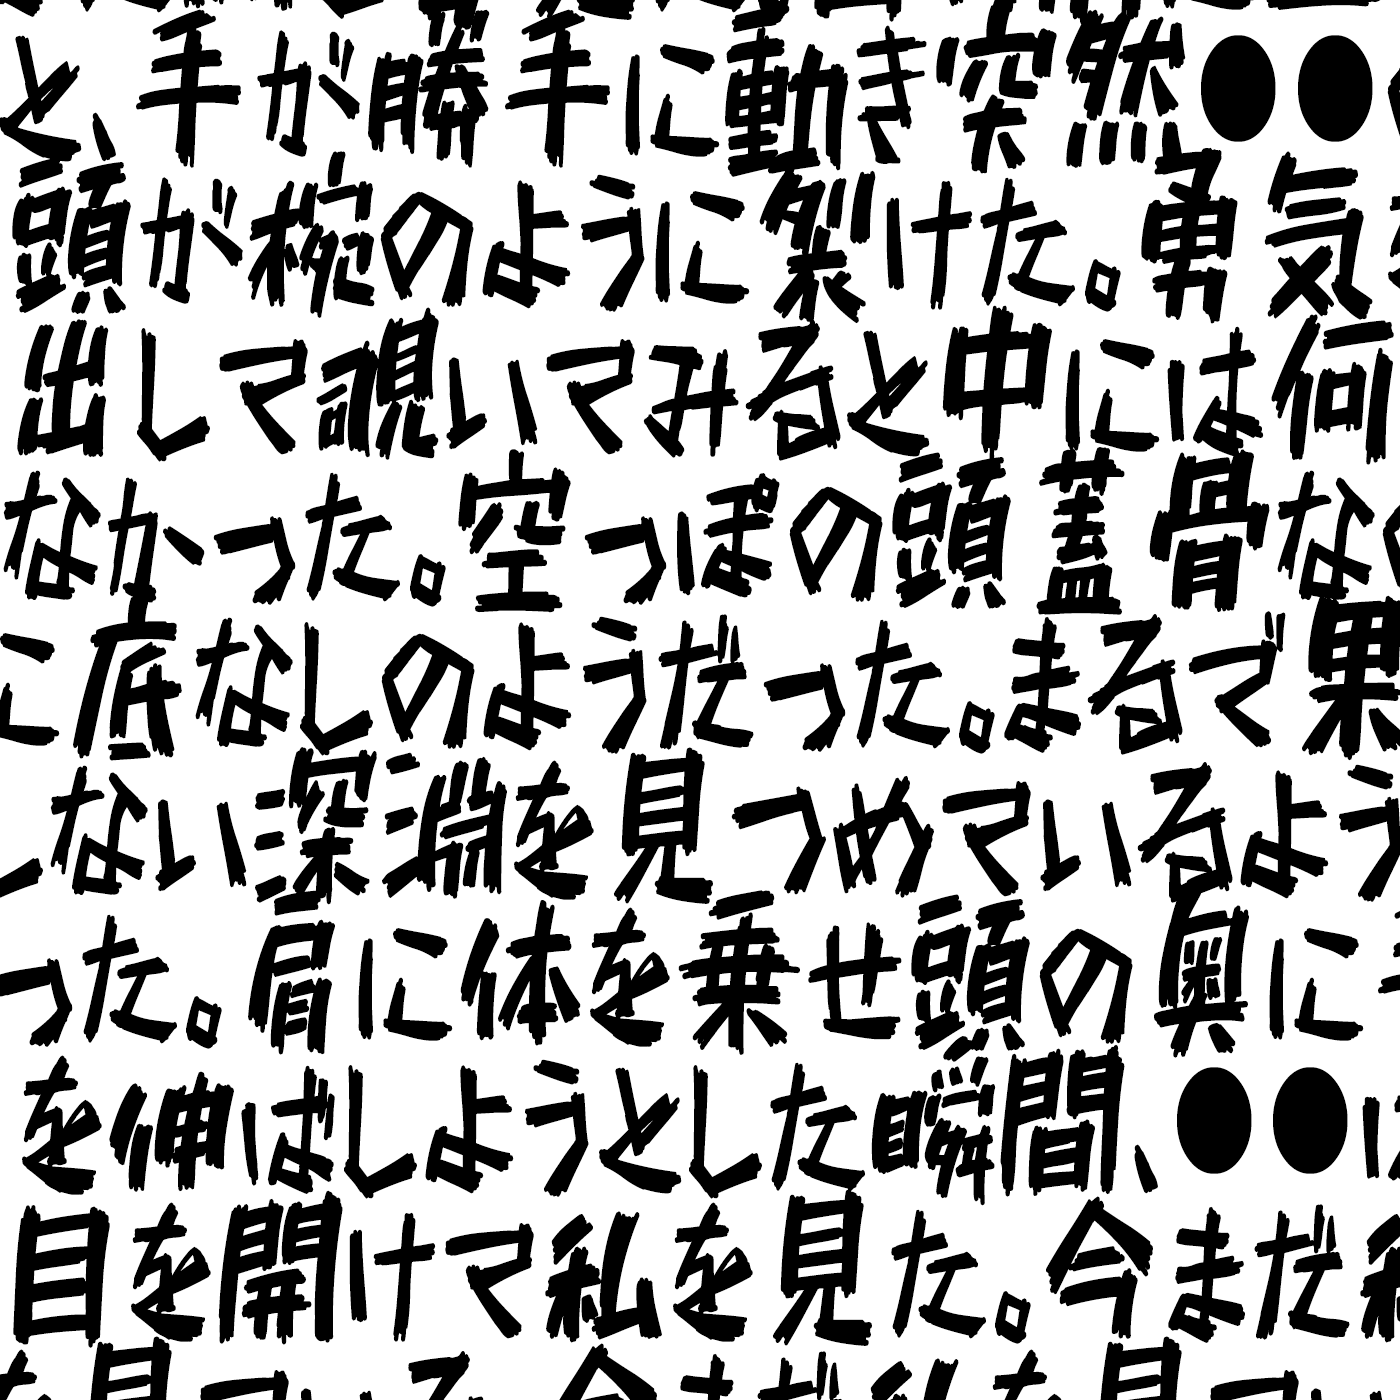 と、手が勝手に動き突然●●
頭が椀のように裂けた。勇気
出して覗いてみると中には何
なかった。空っぽの頭蓋骨な
に底なしのようだった。まるで果
しない深淵を見つめているよう
った。肩に体を乗せ頭の奥に
を伸ばしようとした瞬間、●●は
目を開けて私を見た。今まだ私
を見ている。今まだ私を見つ